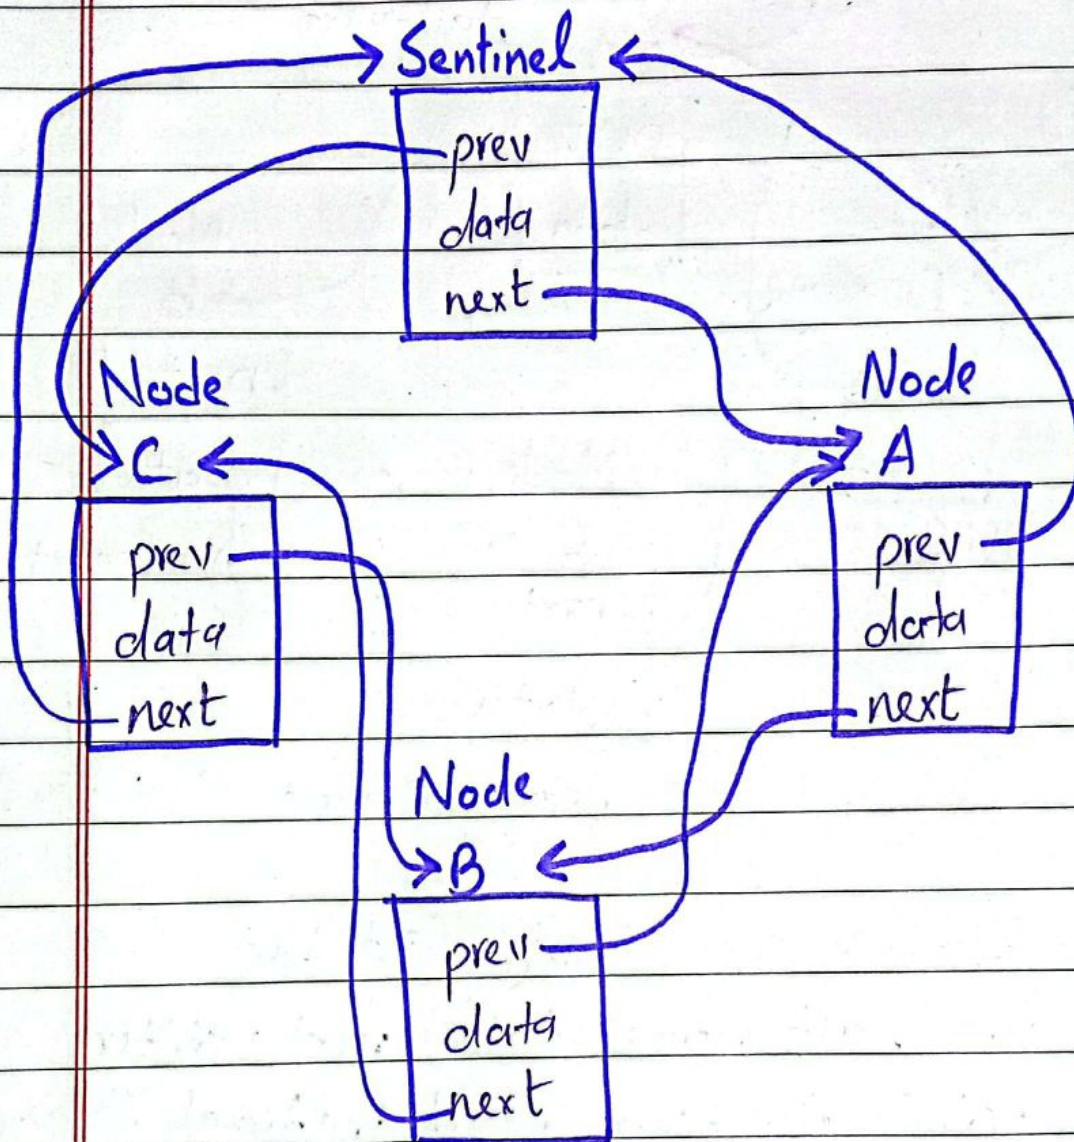 Sentinel
prev
data
next
Node
C
prev
data
next
Node
A
prev
data
next
Node
B
prev
data
next